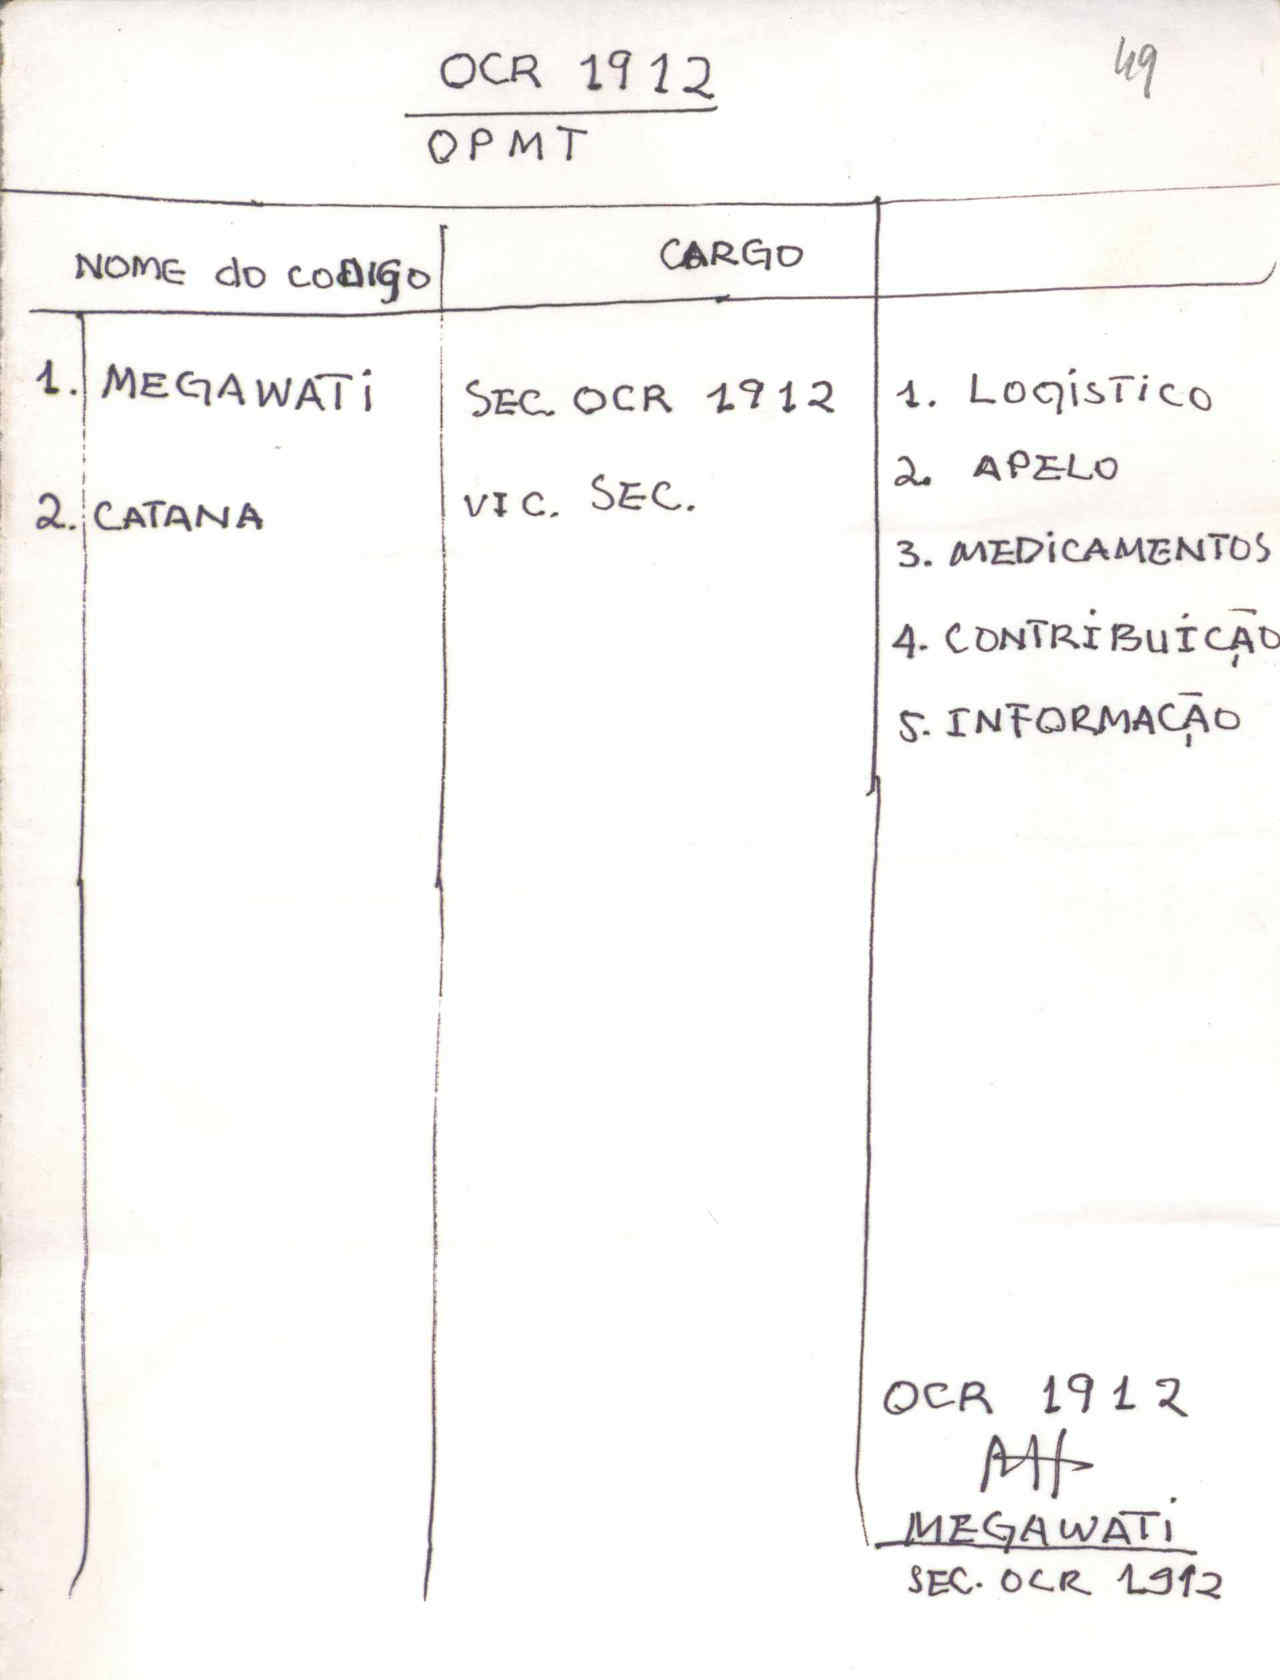 49
OCR 1912
OPMT
NOME do CODIGO CARGO
1. MEGAWATi SEC. OCR 1912 1. LOGÍSTiCO
2. APELO
2. CATANA VIC. SEC.
3. MEDiCAMENTOS
4. CONTRIBUIÇÃO
5. INFORMAÇÃO
OCR 1912
MEGAWATi
SEC. OCR 1912